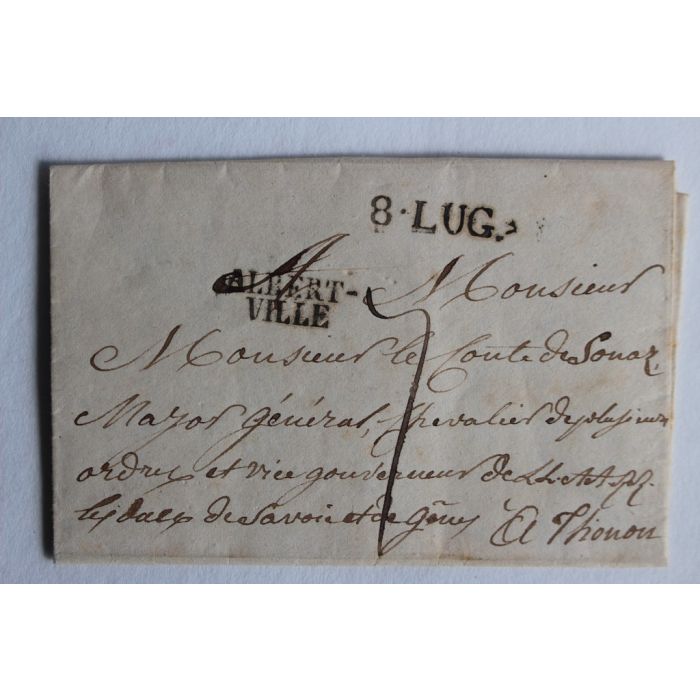 8 · LUG.
ALBERT-
VILLE
Monsieur
Monsieur le Conte de Sonaz
Major général, chevalier de plusieurs
ordres et vice gouverneur de LL. AA. RR.
les ducs de Savoie et de Gênes A Thonon